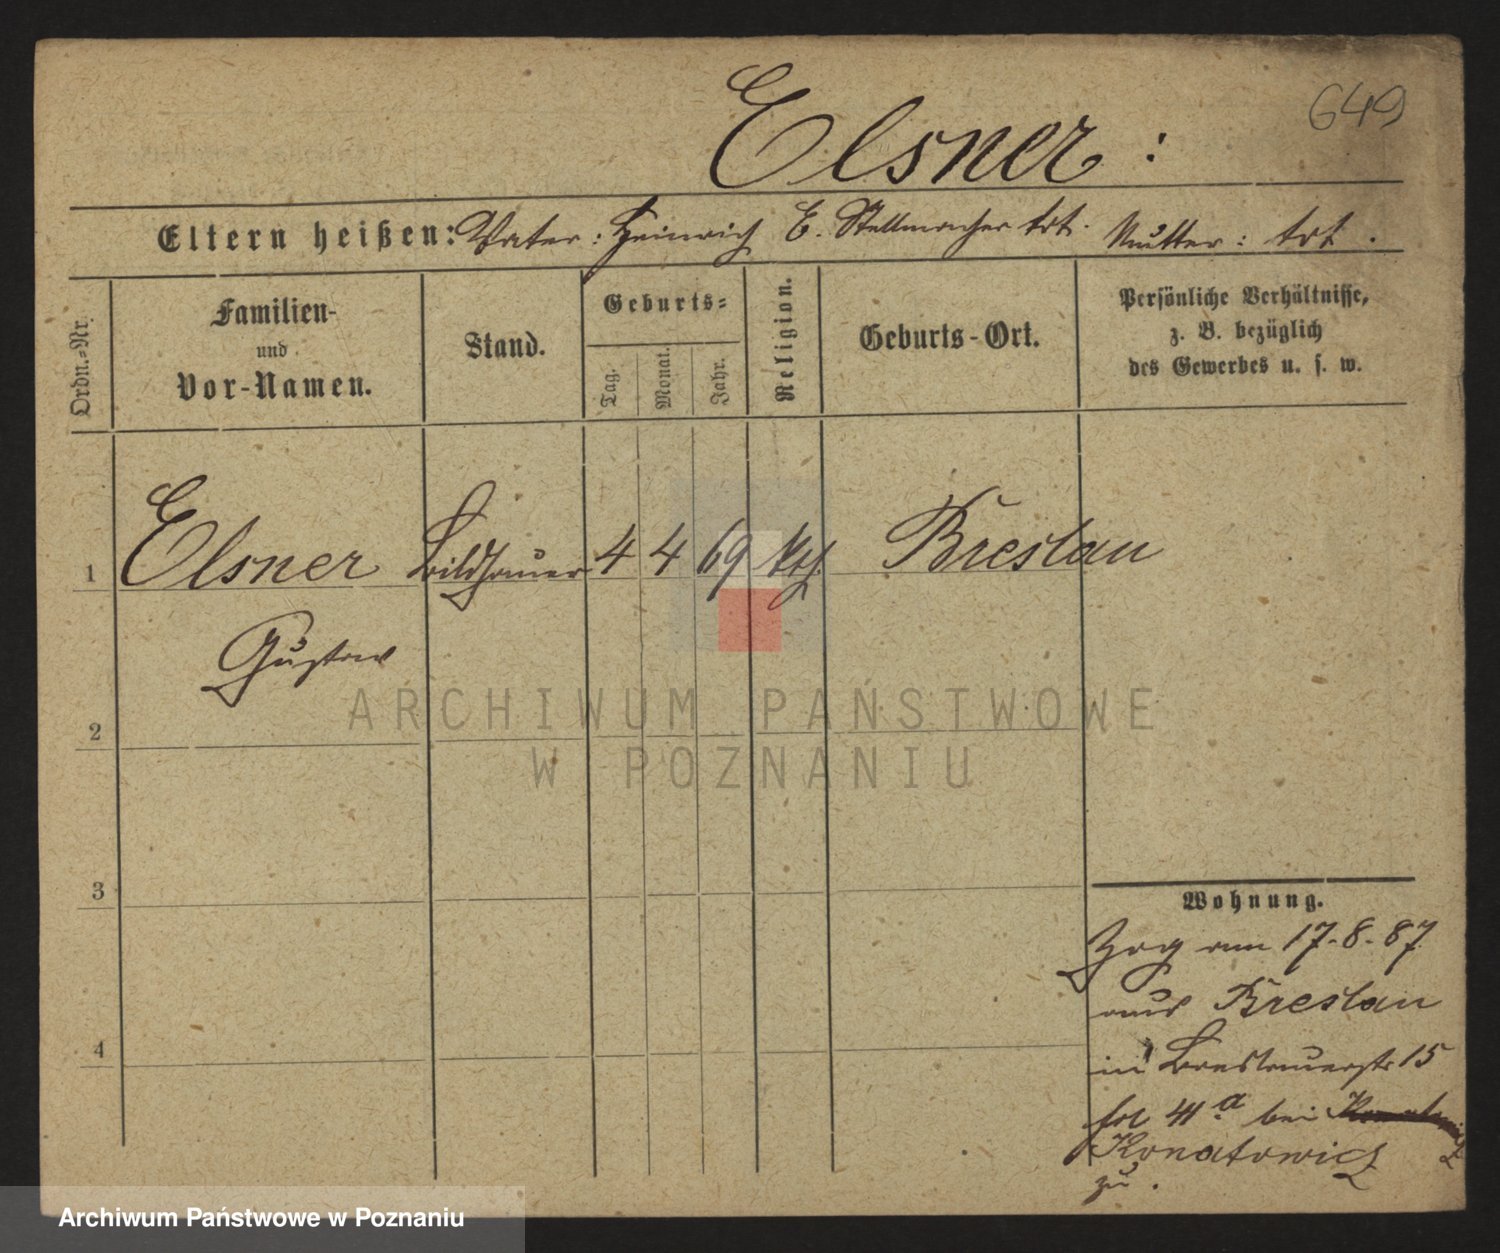 649
Elsner :
Eltern heißen: Vater: Heinrich E. Stellmacher tot. Mutter: tot.
Ordn.-Nr.
Familien-
und
Vor-Namen.
Stand.
Geburts-
Tag.
Monat.
Jahr.
Religion.
Geburts-Ort.
Persönliche Verhältnisse,
z. B. bezüglich
des Gewerbes u. s. w.
1 Elsner Bildhauer 4 4 69 kth. Breslau
Gustav
2
3
4
Wohnung.
Zog am 17-8-87
aus Breslau
in Breslauerstr 15
fol 41 a bei
Konatowicz
zu.
ARCHIWUM PAŃSTWOWE
W POZNANIU
Archiwum Państwowe w Poznaniu